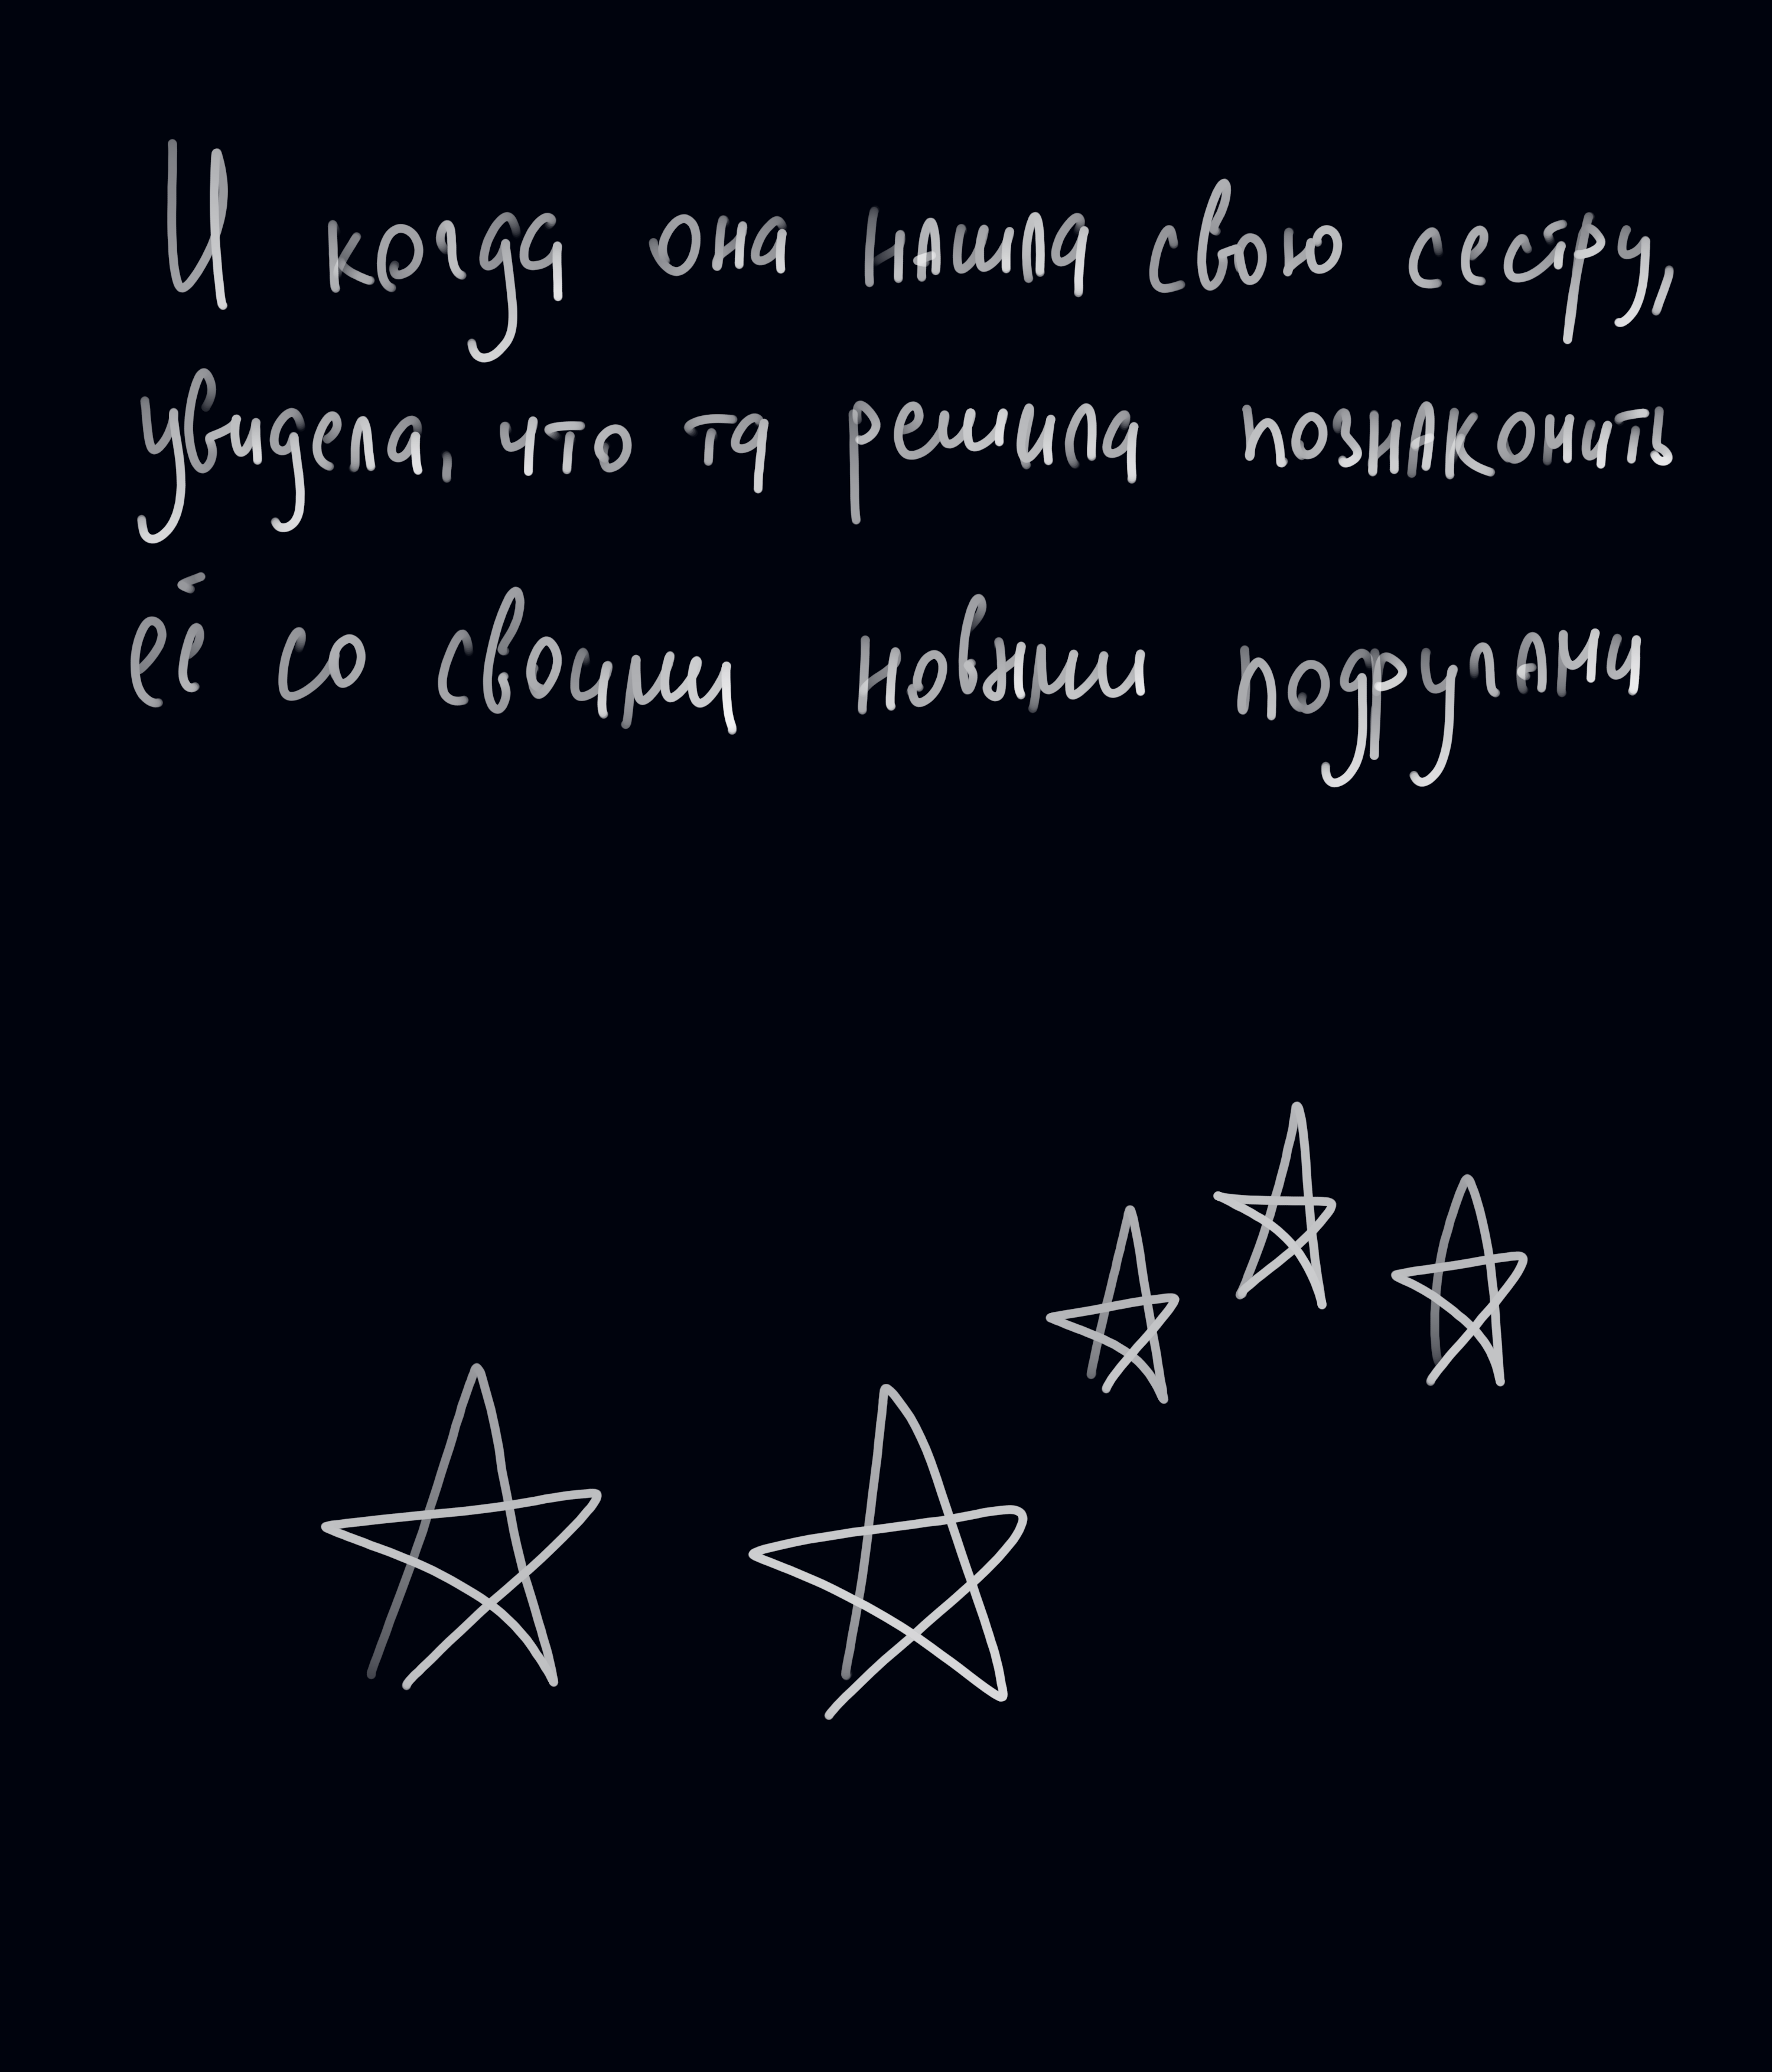 И когда она нашла свою сестру,
увидела, что та решила познакомить
её со своими новыми подругами